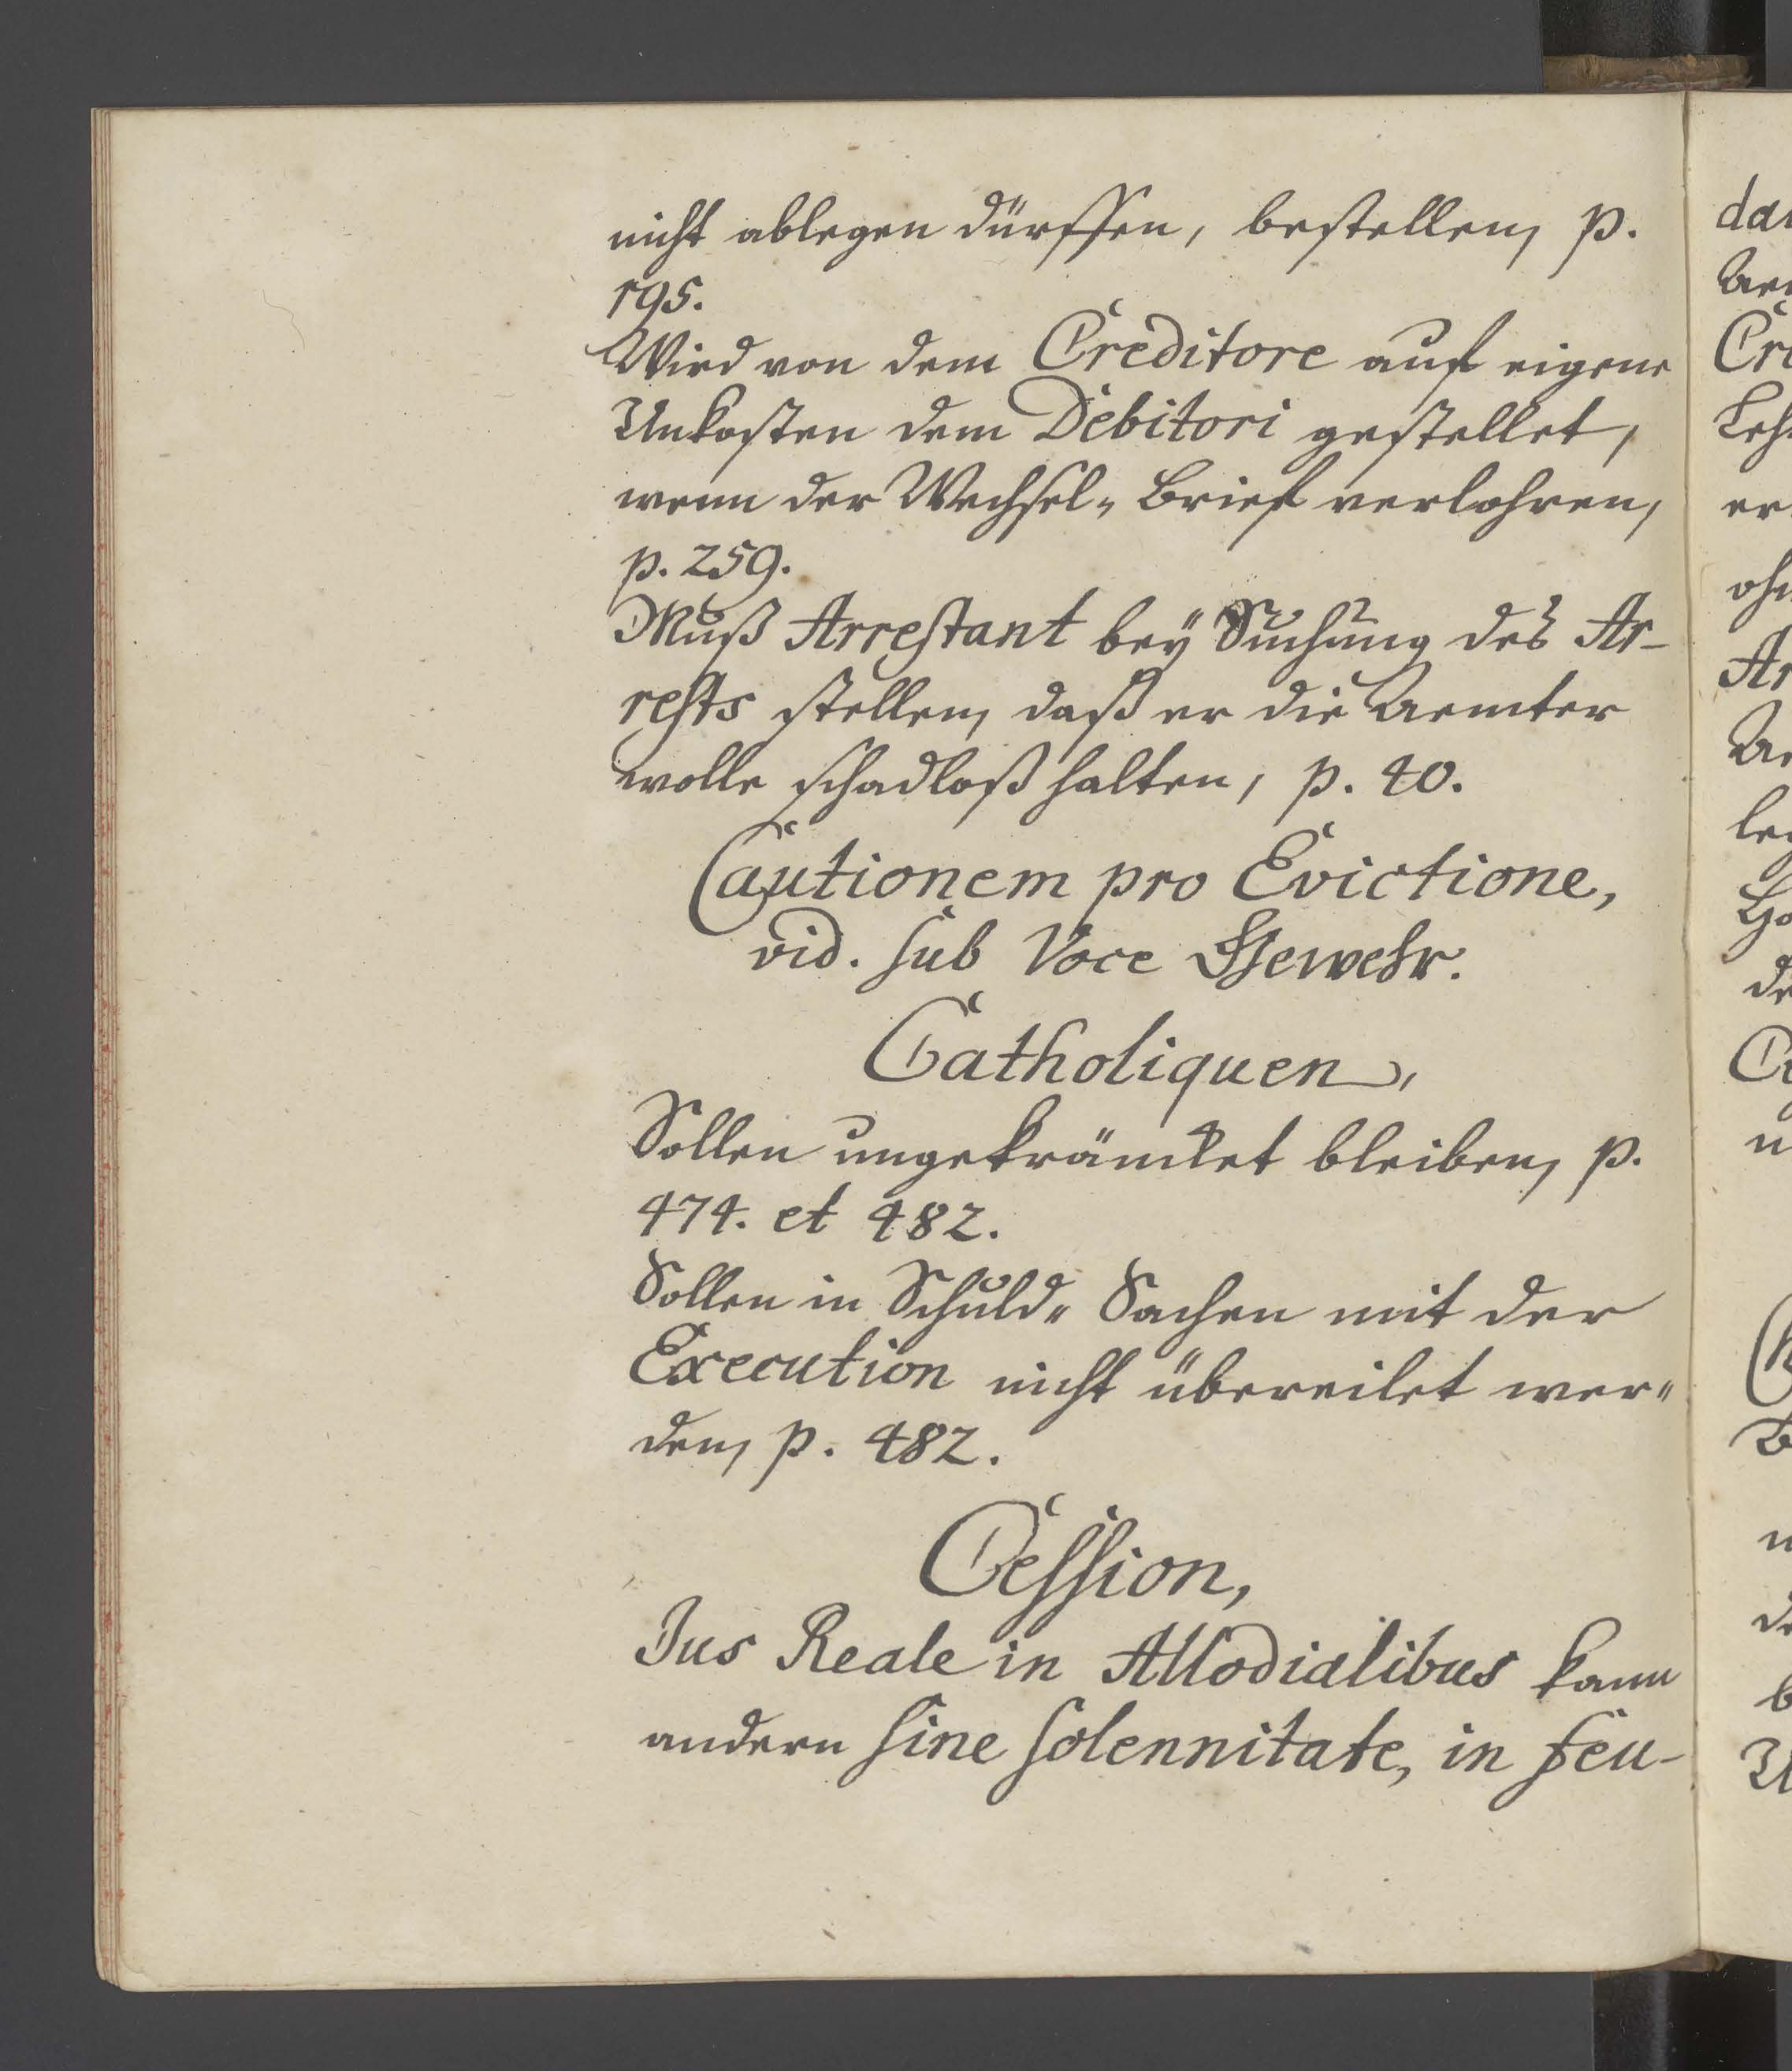 nicht ablegen dürffen, bestellen, p.
195.
Wird von dem Creditore auf eigene
Unkosten dem Debitori gestellet,
wenn der Wechsel„ Brief verlohren,
p. 259.
Muß Arrestant bey Suchung des Ar-
rests stellen, daß er die Aemter
wolle schadloß halten, p. 40.
Cautionem pro Evictione,
vid. sub Voce Gewehr.
Catholiquen,
Sollen ungekräncket bleiben, p.
474. et 482.
Sollen in Schuld„ Sachen mit der
Execution nicht übereilet wer„
den, p. 482.
Cession,
Jus Reale in Allodialibus kann
andern sine solennitate, in feu-